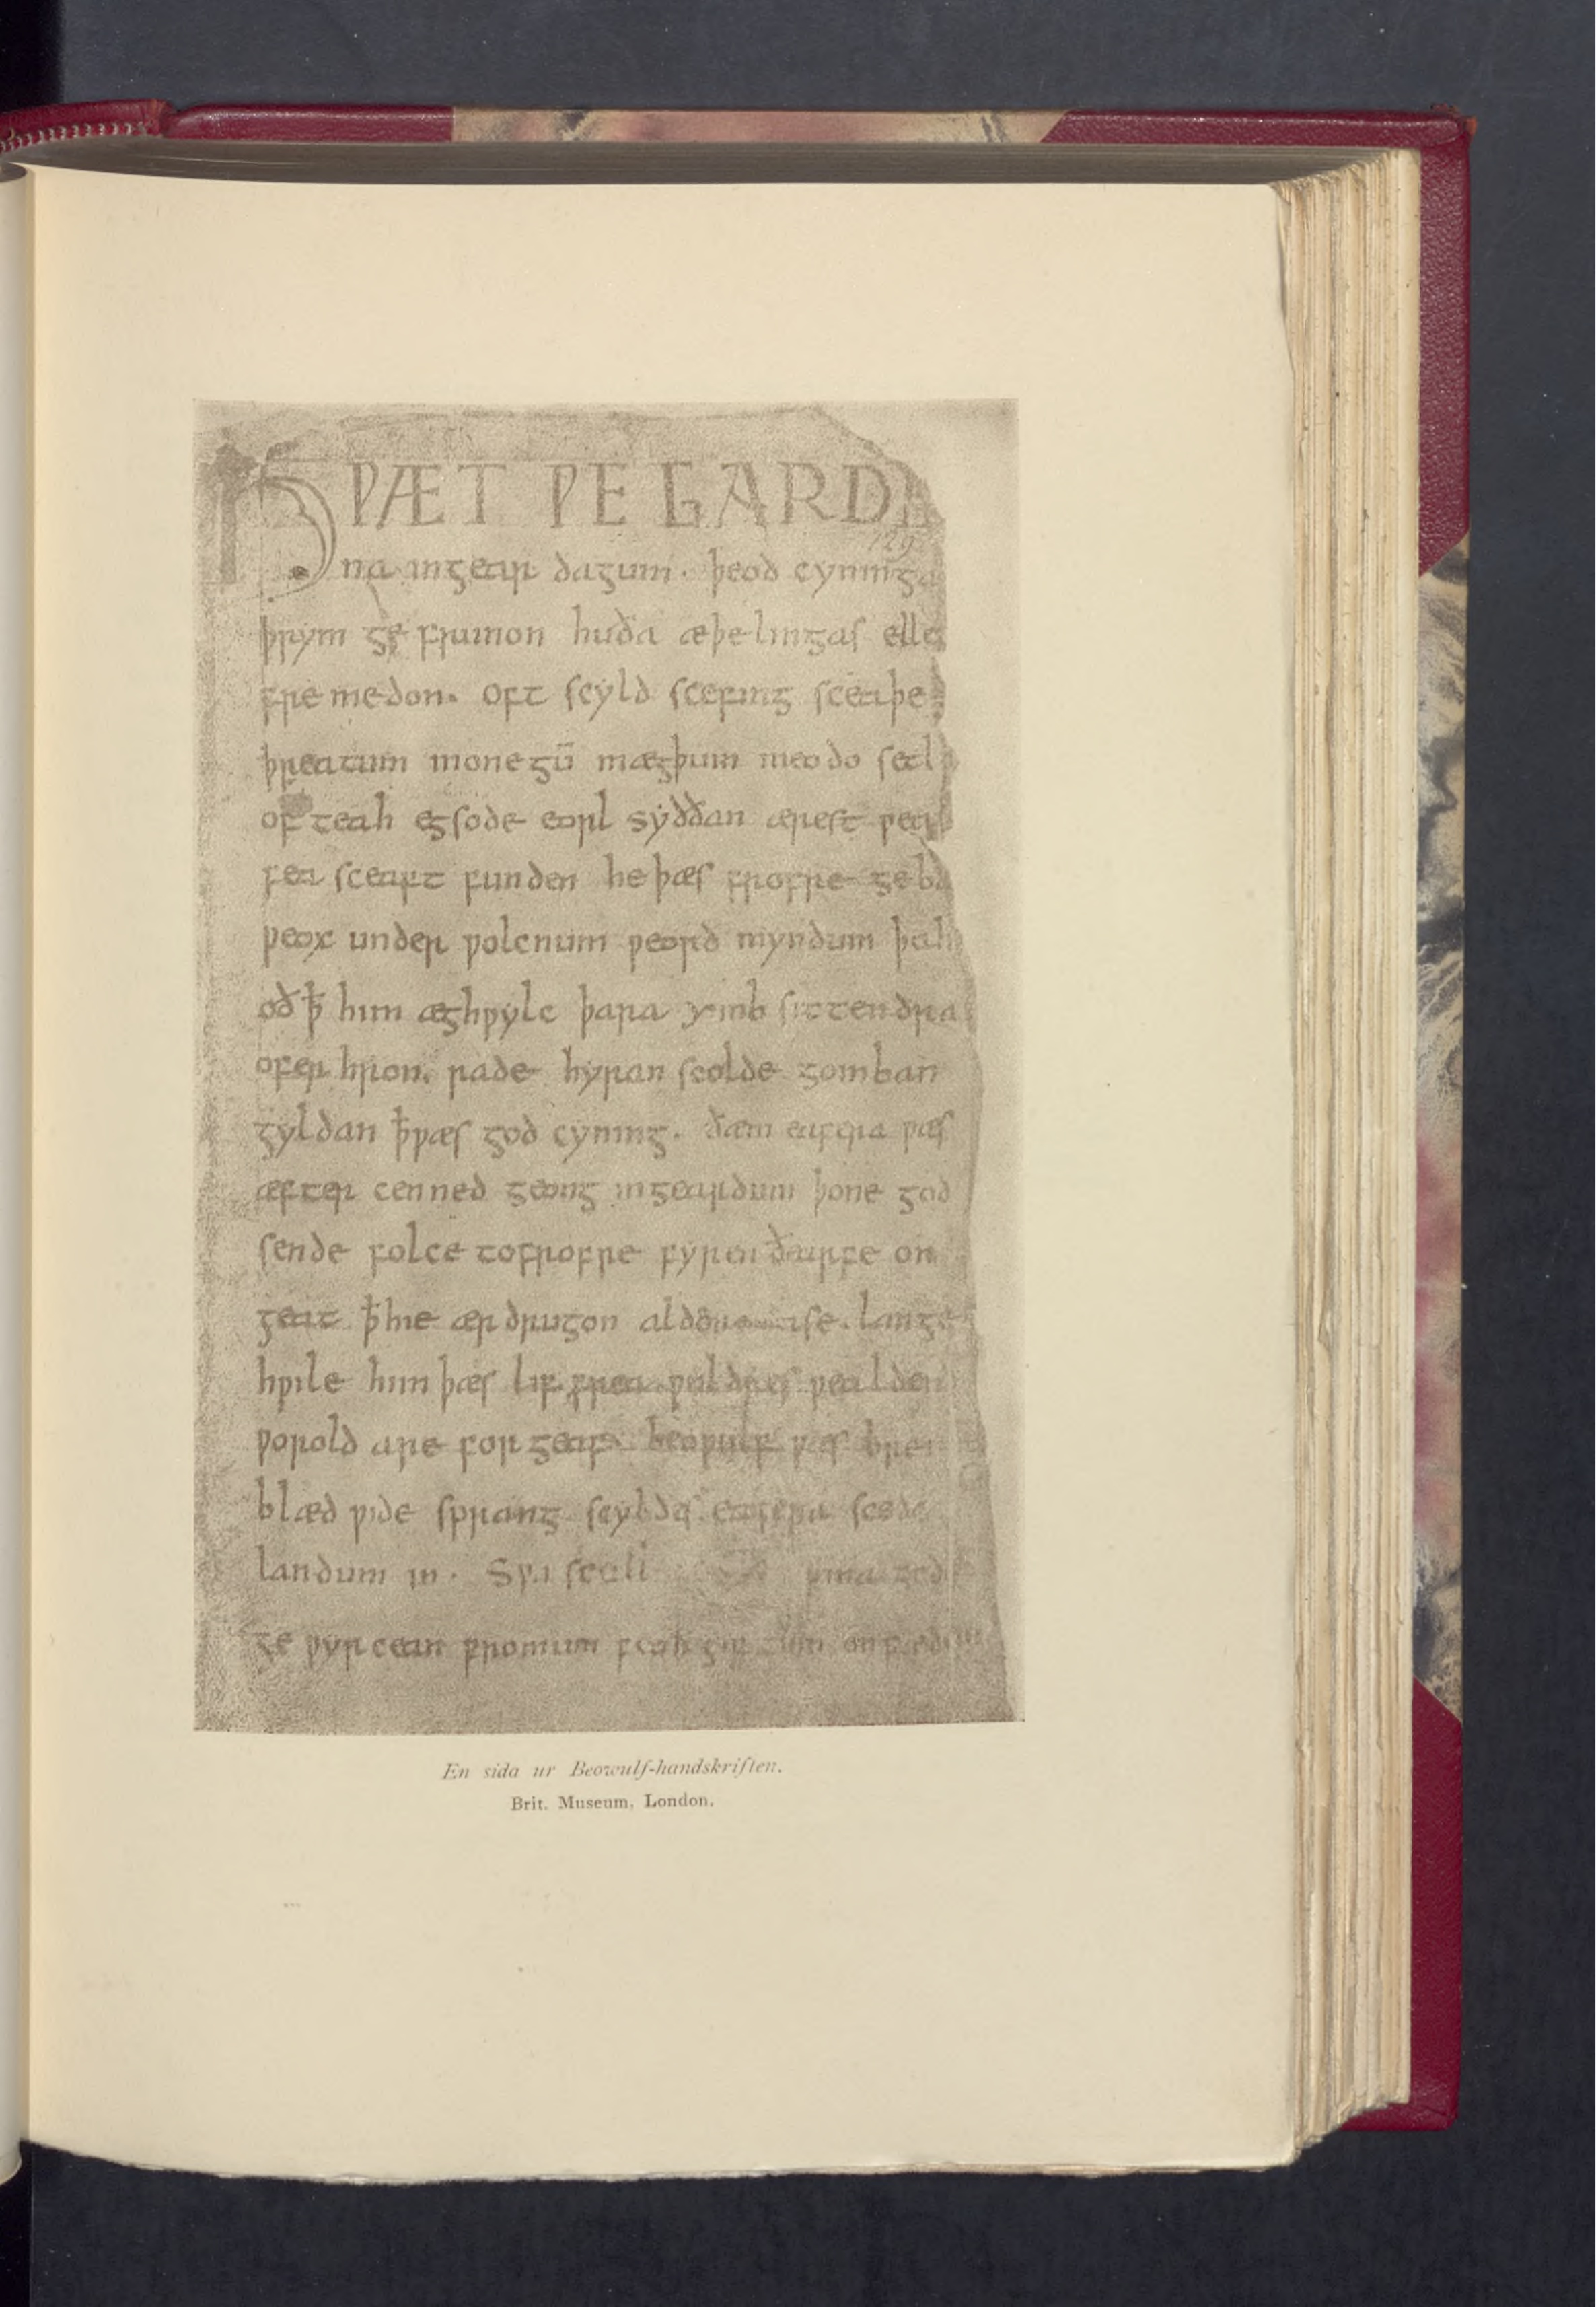 HǷÆT ǷE GARDE
na ingear dagum. þeod cyninga
þrym ge frunon huða æþelingas elle
fre medon. oft scyld scefing sceaþe
þreatum monegū mægþum meodo setl
of teah egsode eorl syððan ærest ƿear
fea sceaft funden he þæs frofre geba
ƿeox under ƿolcnum ƿeorð myndum þah
oð ꝥ him æghƿylc þara ymb sittendra
ofer hron. rade hyran scolde gomban
gyldan ꝥƿæs god cyning. ðæm eafera ƿæs
æfter cenned geong ingeardum þone god
sende folce tofrofre fyren ðearfe on
geat ꝥhie ær drugon aldor ase. lange
hƿile him þæs lif frea ƿuldres ƿealdend
ƿorold are for geaf. beoƿulf ƿæs breme
blæd ƿide sprang scyldes eafera scede
landum in. Sƿa sceal god
ge ƿyrcean fromum feoh giftum on fæder
En sida ur Beowulf-handskriften.
Brit. Museum, London.